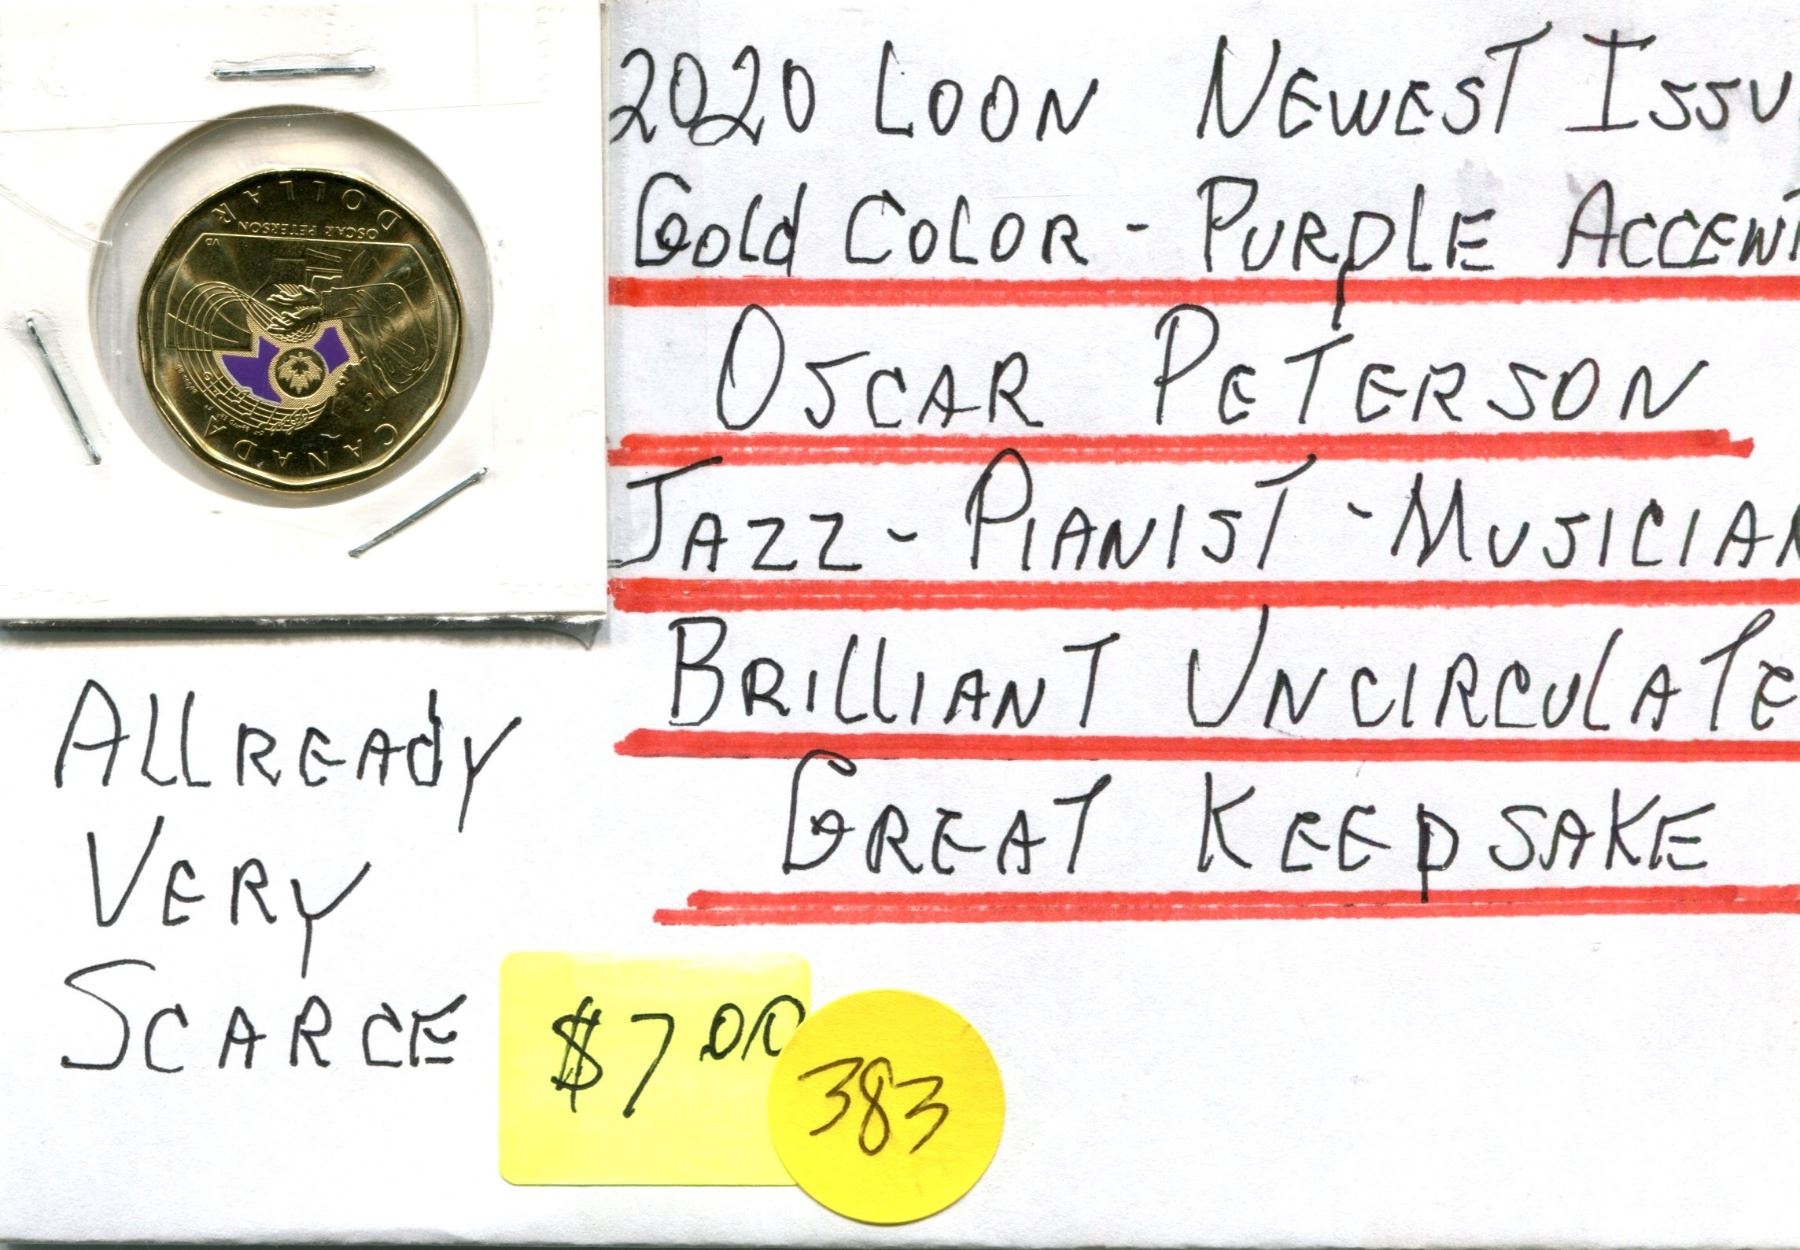 2020 LOON NEWEST ISSU
GOld COLOR - PURPLE ACCENT
OSCAR PETERSON
JAZZ - PIANIST - MUSICIAN
BRILLIANT UNCIRCULATE
GREAT KEEPSAKE
ALLREAdY
VERY
SCARCE
$7.00
383
DOLLAR
OSCAR PETERSON
VD
CANADA